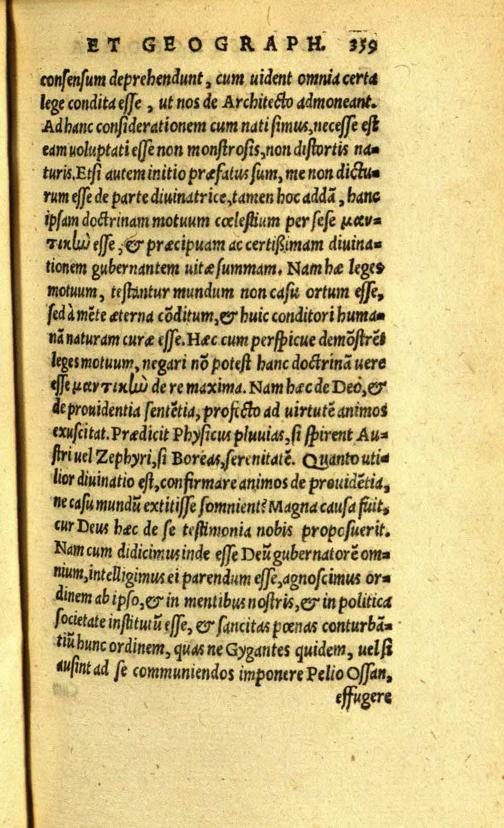 ET GEOGRAPH. 359
consensum deprehendunt, cum uident omnia certa
lege condita esse, ut nos de Architecto admoneant.
Ad hanc considerationem cum nati simus, necesse est
eam uoluptati esse non monstrosis, non distortis na-
turis. Etsi autem initio præfatus sum, me non dictu-
rum esse de parte diuinatrice, tamen hoc addã, hanc
ipsam doctrinam motuum cœlestium per sese μαν-
τικὼ esse, & præcipuam ac certißimam diuina-
tionem gubernantem uitæ summam. Nam hæ leges
motuum, testantur mundum non casu ortum esse,
sed à mẽte æterna cõditum, & huic conditori huma-
nã naturam curæ esse. Hæc cum perspicue demõstrẽt
leges motuum, negari nõ potest hanc doctrinã uere
esse μαντικὼ de re maxima. Nam hæc de Deo, &
de prouidentia sentẽtia, profecto ad uirtutẽ animos
exuscitat. Prædicit Physicus pluuias, si spirent Au-
stri uel Zephyri, si Boreas, serenitatẽ. Quanto uti-
lior diuinatio est, confirmare animos de prouidẽtia,
ne casu mundũ extitisse somnient? Magna causa fuit,
cur Deus hæc de se testimonia nobis proposuerit.
Nam cum didicimus inde esse Deũ gubernatorẽ om-
nium, intelligimus ei parendum esse, agnoscimus or-
dinem ab ipso, & in mentibus nostris, & in politica
societate institutũ esse, & sancitas pœnas conturbã-
tiũ hunc ordinem, quas ne Gygantes quidem, uel si
ausint ad se communiendos imponere Pelio Ossan,
effugere